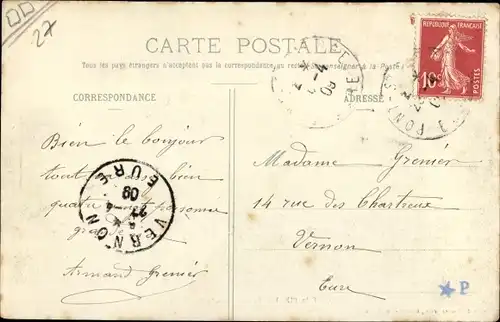 27
CARTE POSTALE
Tous les pays étrangers n'acceptent pas la correspondance au recto
à la Poste
CORRESPONDANCE
ADRESSE
REPUBLIQUE FRANÇAISE
10c
Bien le bonjour
tout bien
quatre personne
Armand Grenier
VERNON EURE
09
Madame Grenier
14 rue des Chartreux
Vernon
Eure
09
PONT
P